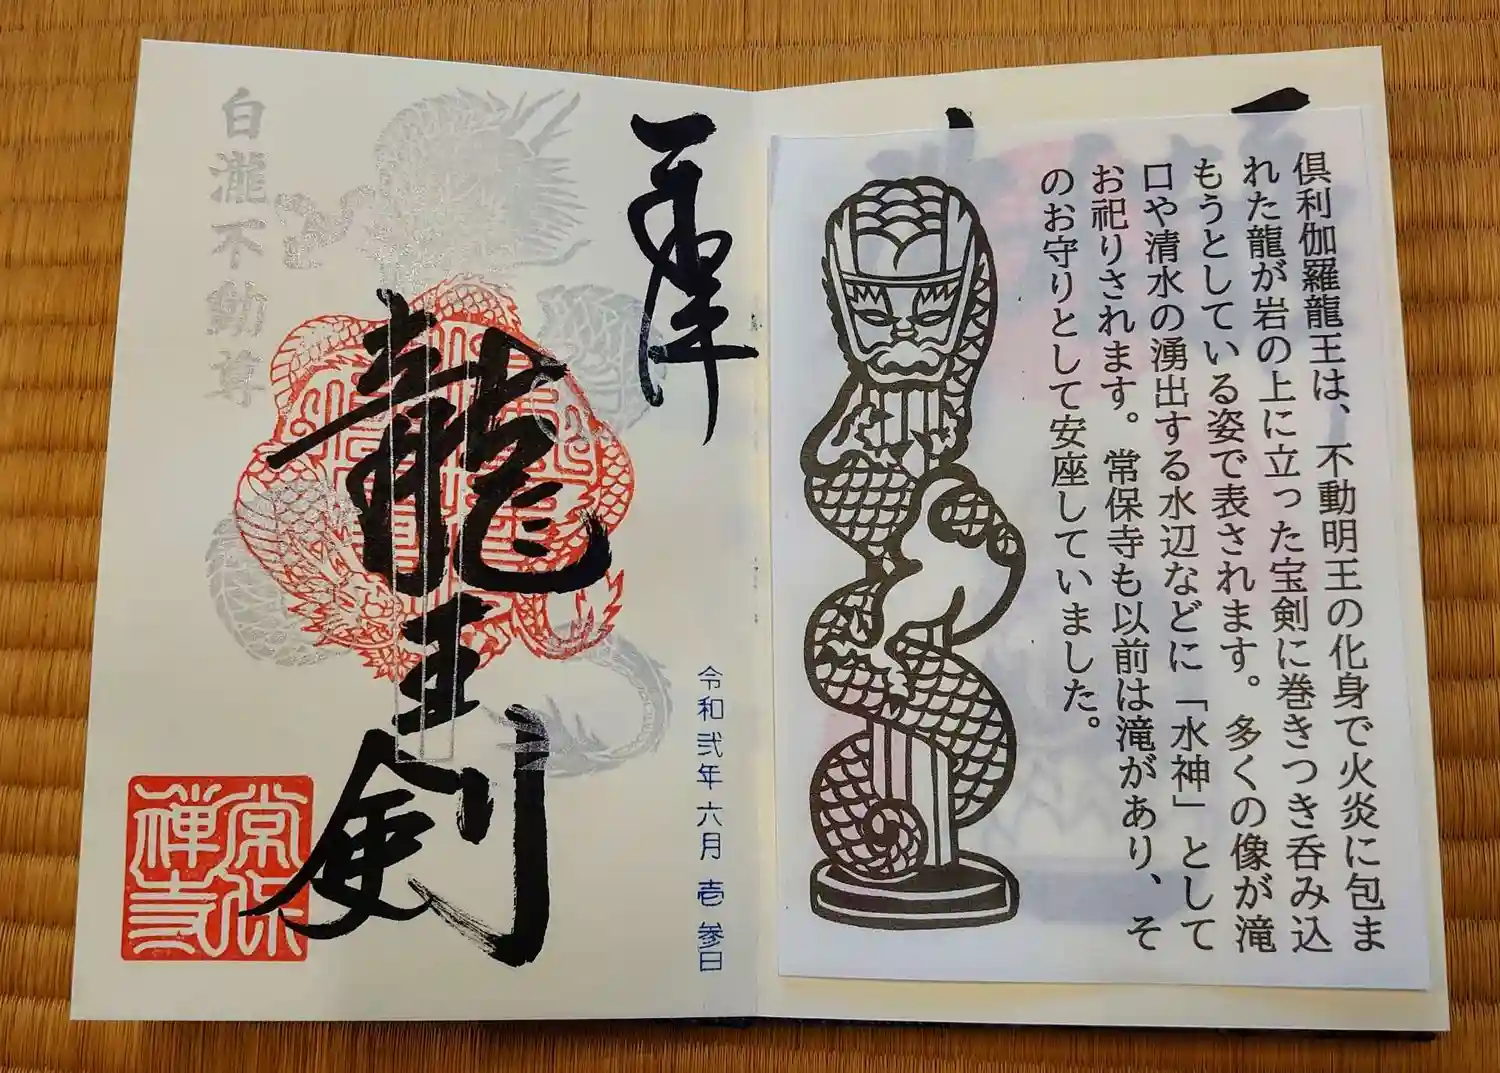 倶利伽羅龍王は、不動明王の化身で火炎に包ま
れた龍が岩の上に立った宝剣に巻きつき呑み込
もうとしている姿で表されます。多くの像が滝
口や清水の湧出する水辺などに「水神」として
お祀りされます。常保寺も以前は滝があり、そ
のお守りとして安座していました。
奉拝
令和弐年六月壱参日
龍王剣
白瀧不動尊
常保
禅寺